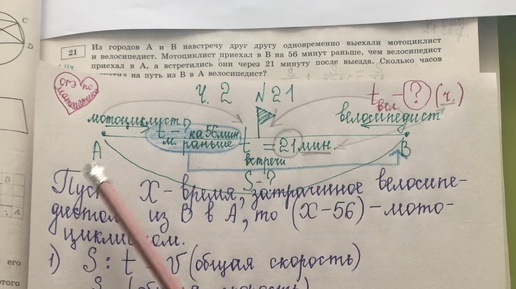 21
Из городов А и В навстречу друг другу одновременно выехали мотоциклист
и велосипедист. Мотоциклист приехал в В на 56 минут раньше, чем велосипедист
приехал в А, а встретились они через 21 минуту после выезда. Сколько часов
на путь из В в А велосипедист?
ОГЭ по математике
Ч. 2 N 21
t вел. - ? (ч.)
мотоциклист
велосипедист
t - ? на 56 мин. раньше
t встречи = 21 мин.
А
В
S - ?
Пусть х - время, затраченное велосипе-
дистом из В в А, то (х-56) - мото-
циклистом.
1) S : t = V (общая скорость)